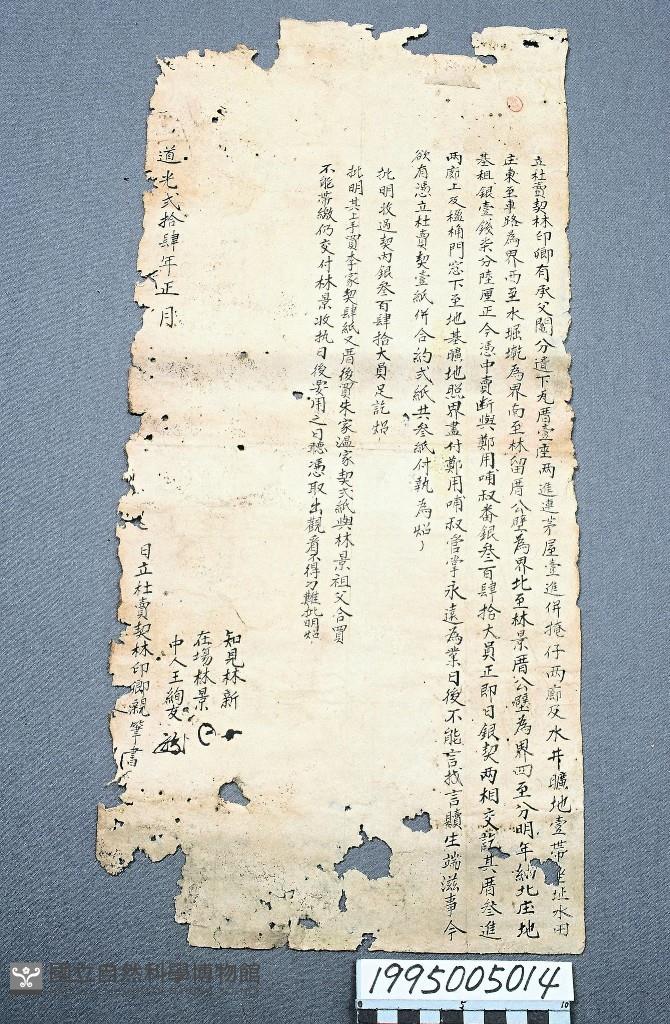 立杜賣契林印卿有承父鬮分遺下瓦厝壹座两進連茅屋壹進併掩仔两廊及水井曠地壹帶坐址水田
庄東至車路為界西至水堀墘為界向至林留厝公壁為界北至林景厝公壁為界四至分明年納北庄地
基租銀壹錢柒分陸厘正今憑中賣断與鄭用哺叔番銀叁百肆拾大員正即日銀契两相交訖其厝叁進
两廊上及楹桷門窓下至地基曠地照界盡付鄭用哺叔管掌永遠為業日後不能言找言贖生端滋事今
欲有憑立杜賣契壹紙併合約弍紙共叁紙付執為炤
批明收過契内銀叁百肆拾大員足訖炤
批明其上手買李家契肆紙又厝後買朱家温家契弍紙與林景祖父合買
不能帶繳仍交付林景收执日後要用之日聽憑取出觀看不得刁難批明炤
知見林新
在塲林景
中人王絢友
道光弍拾肆年正月 日立杜賣契林印卿親筆書
國立自然科學博物館
1995005014
5
10